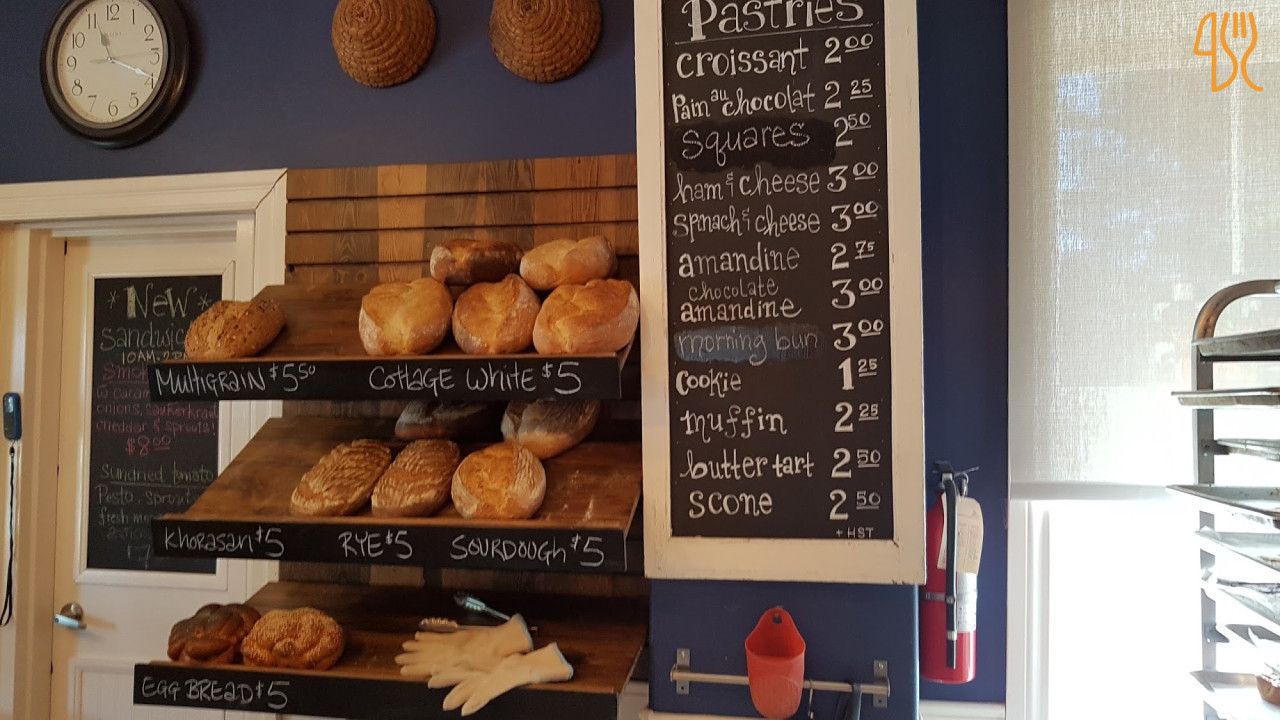 Pastries
croissant 2.00
Pain au chocolat 2 25
squares 2 50
ham & cheese 3 00
spinach & cheese 3 00
amandine 2 75
chocolate
amandine 3 00
morning bun 3 00
cookie 1 25
muffin 2 25
butter tart 2 50
scone 2 50
+ HST
11 12 1
10 2
9 3
8 4
7 6 5
*New*
10AM
onions, sauerkraut
cheddar & sprouts!
$8.00
Sundried tomato
Pesto, sprouts
fresh
Multigrain $5 50 Cottage White $5
Khorasan $5 RYE $5 Sourdough $5
Egg Bread $5